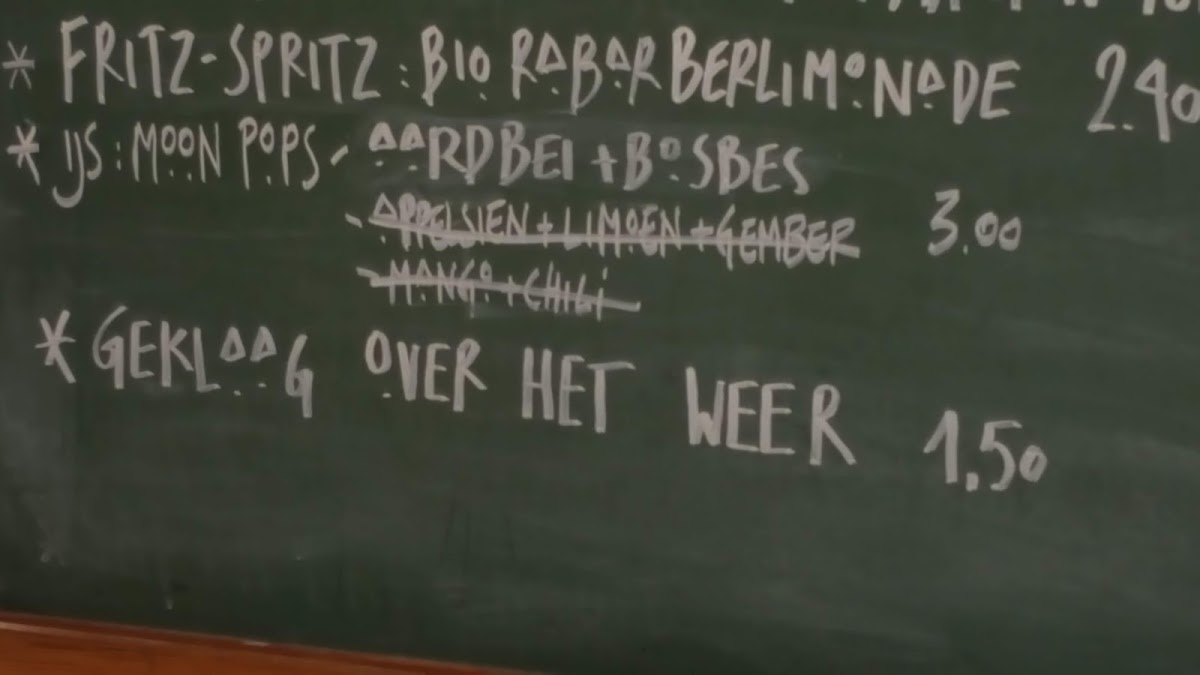 * FRITZ-SPRITZ: BIO RABARBERLIMONADE 2.40
* IJS: MOON POPS - AARDBEI + BOSBES
- APPELSIEN + LIMOEN + GEMBER 3.00
- MANGO + CHILI
* GEKLAAG OVER HET WEER 1,50